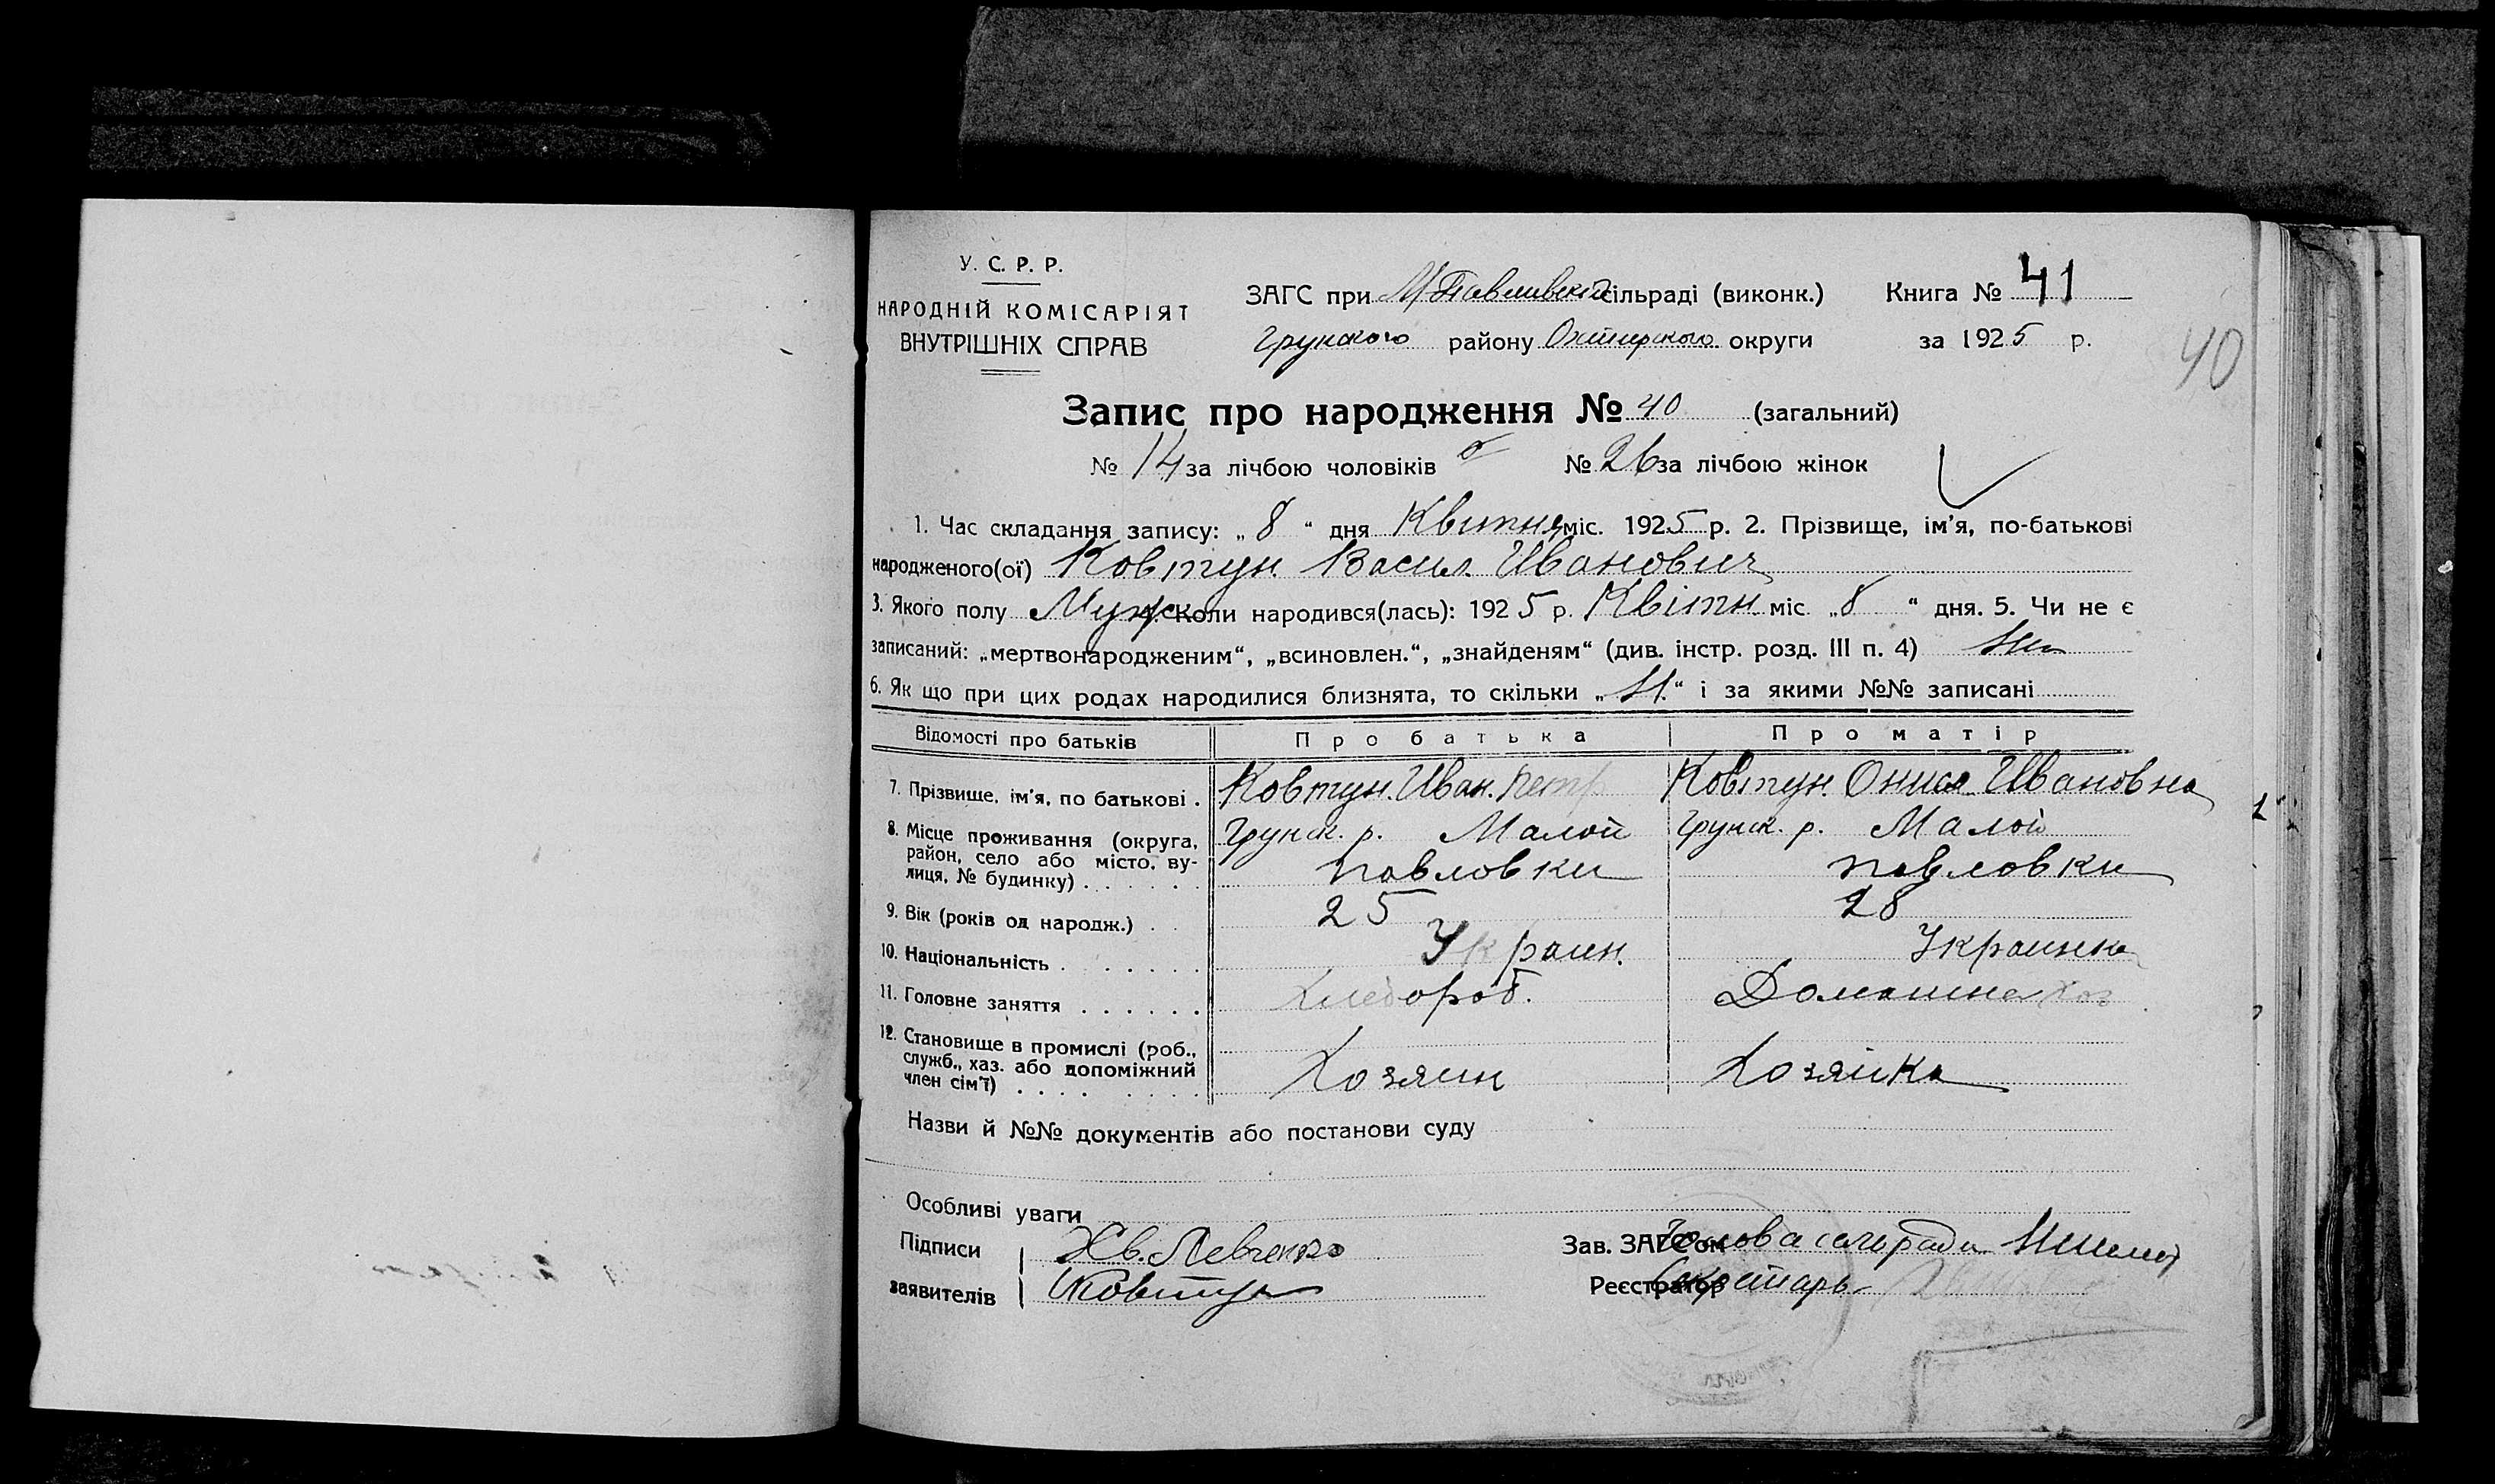 У. С. Р. Р.
НАРОДНІЙ КОМІСАРІЯТ
ВНУТРІШНІХ СПРАВ
ЗАГС при М Павливской сільраді (виконк.) Книга № 41
Грунского району Охтирского округи за 1925 р.
40
Запис про народження № 40 (загальний)
№ 14 за лічбою чоловіків № 26 за лічбою жінок
1. Час складання запису: „8“ дня Квитня міс. 1925 р. 2. Прізвище, ім'я, по-батькові
народженого(ої) Ковтун Васил Иванович
3. Якого полу Мужск. коли народився(лась): 1925 р. Квітн міс „8“ дня. 5. Чи не є
записаний: „мертвонародженим“, „всиновлен.“, „знайденям“ (див. інстр. розд. III п. 4) Ни
6. Як що при цих родах народилися близнята, то скільки „Н.“ і за якими №№ записані
Відомості про батьків Про батька Про матір
7. Прізвище, ім'я, по батькові . Ковтун. Иван. Петр Ковтун. Онися Ивановна
8. Місце проживання (округа, Грунск. р. Малой Грунск. р. Малой
район, село або місто, ву- павловки павловки
лиця, № будинку) . . . . . .
9. Вік (років од народж.) . . 25 28
10. Національність . . . . . . Украин. Украинка
11. Головне заняття . . . . . . Хлебороб. Домашне хоз
12. Становище в промислі (роб.,
служб., хаз. або допоміжний Хозяин Хозяйка
член сім'ї) . . . . . . . .
Назви й №№ документів або постанови суду
Особливі уваги
Підписи Хв. Левченко Зав. ЗАГС'ом Голова сельради
заявителів Ковтун Реєстратор Секретарь